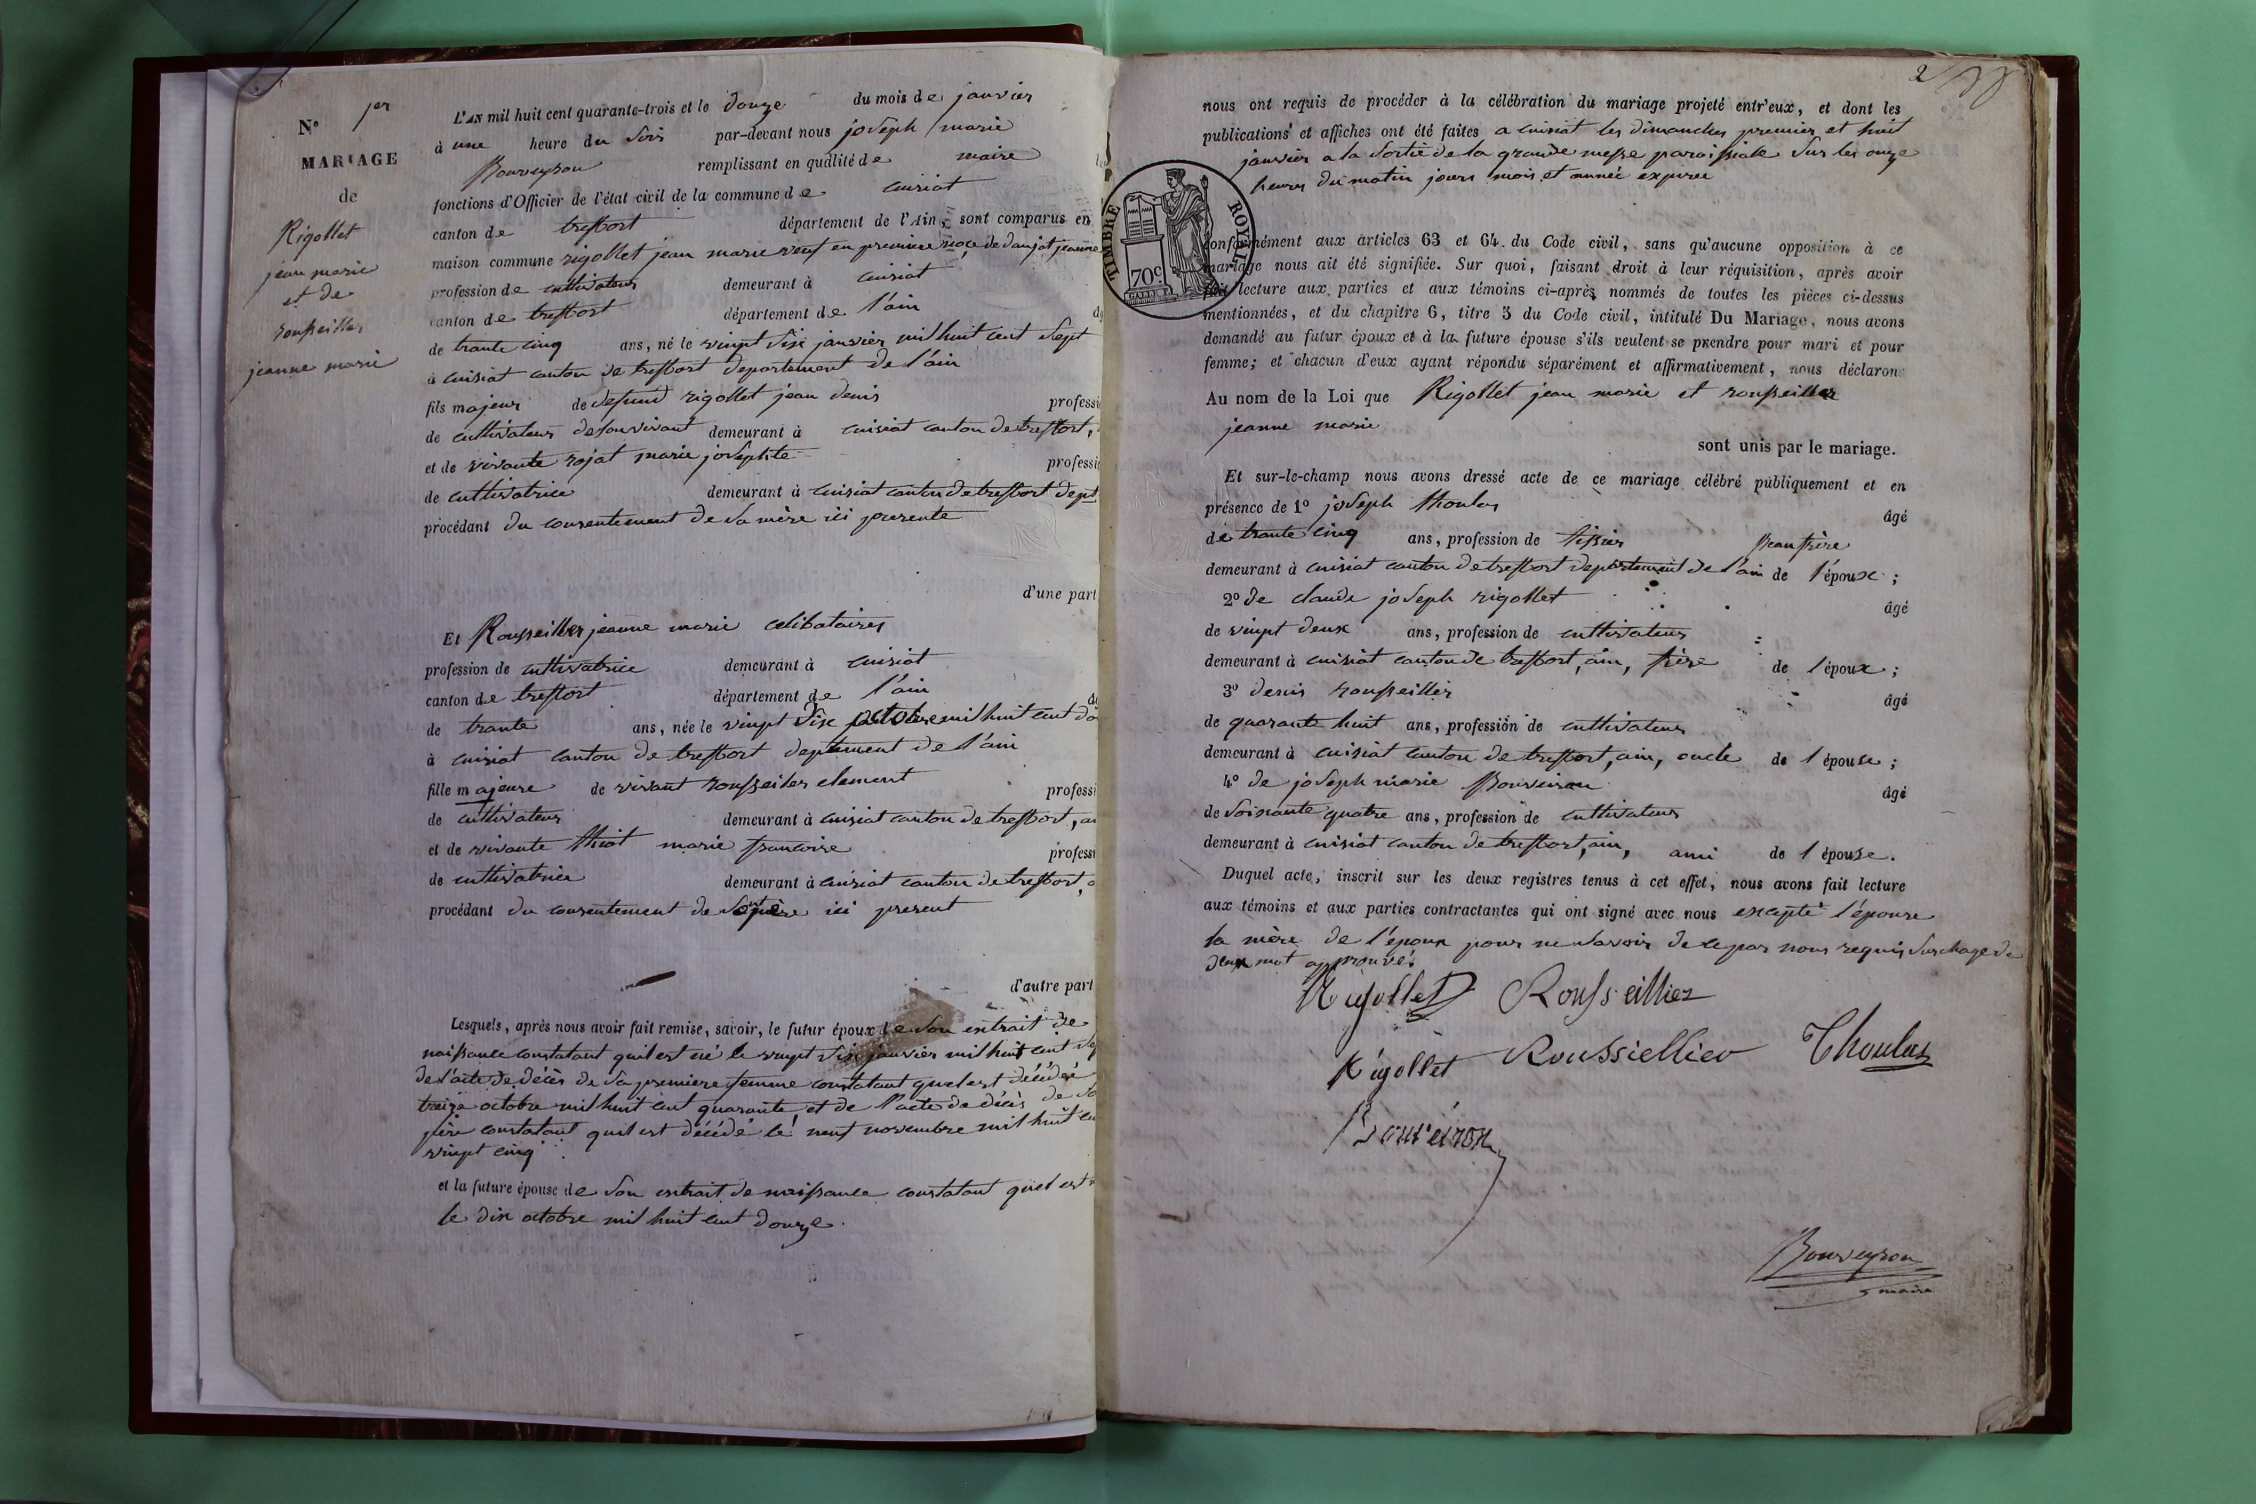 Nº 1er
MARIAGE
de
Rigollet
jean marie
et de
rousseiller
jeanne marie
L'AN mil huit cent quarante-trois et le douze du mois de janvier
à une heure du Soir par-devant nous joseph marie
Bouveyron remplissant en qualité de maire
fonctions d'Officier de l'état civil de la commune de cuisiat
canton de treffort département de l'Ain, sont comparus en
maison commune rigollet jean marie veuf en premiere noce de danjat jeanne
profession de cultivateur demeurant à cuisiat
canton de treffort département de l'ain
de trante cinq ans, né le vingt Six janvier mil huit cent Sept
à cuisiat canton de treffort departement de l'ain
fils majeur de defund rigollet jean denis professi
de cultivateur de son vivant demeurant à cuisiat canton de treffort,
et de vivante rojat marie josephte professi
de cultivatrice demeurant à cuisiat canton de treffort dept
procédant du consentement de Sa mère ici presente
d'une part
Et Rousseiller jeanne marie celibataires
profession de cultivatrice demeurant à cuisiat
canton de treffort département de l'ain
de trante ans, née le vingt Six octobre mil huit cent do
à cuisiat canton de treffort deptement de l'ain
fille majeure de vivant rousseiler clement professi
de cultivateur demeurant à cuisiat canton de treffort,
et de vivante thiot marie francoise professi
de cultivatrice demeurant à cuisiat canton de treffort,
procédant du consentement de Son père ici present
d'autre part
Lesquels, après nous avoir fait remise, savoir, le futur époux de Son extrait de
naissance constatant quil est né le vingt Six janvier mil huit cent Sep
de l'acte de décès de Sa premiere femme constatant quel est décédée
treize octobre mil huit cent quarante, et de l'acte de décès de So
père constatant quil est décédé le neuf novembre mil huit cen
vingt cinq
et la future épouse de Son extrait de naissance constatant quel est
le dix octobre mil huit cent douze.
2
nous ont requis de procéder à la célébration du mariage projeté entr'eux, et dont les
publications et affiches ont été faites a cuisiat les dimanches premier et huit
janvier a la Sortie de la grande messe paroissiale Sur les onze
heures du matin jours mois et année expirée
TIMBRE ROYAL
70c
conformément aux articles 63 et 64 du Code civil, sans qu'aucune opposition à ce
mariage nous ait été signifiée. Sur quoi, faisant droit à leur réquisition, après avoir
fait lecture aux parties et aux témoins ci-après nommés de toutes les pièces ci-dessus
mentionnées, et du chapitre 6, titre 5 du Code civil, intitulé Du Mariage, nous avons
demandé au futur époux et à la future épouse s'ils veulent se prendre pour mari et pour
femme; et chacun d'eux ayant répondu séparément et affirmativement, nous déclarons
Au nom de la Loi que Rigollet jean marie et rousseiller
jeanne marie
sont unis par le mariage.
Et sur-le-champ nous avons dressé acte de ce mariage célébré publiquement et en
présence de 1º joseph thoulas âgé
de trante cinq ans, profession de tissier Beau frère
demeurant à cuisiat canton de treffort departement de l'ain de l'époux;
2º de claude joseph rigollet âgé
de vingt deux ans, profession de cultivateur
demeurant à cuisiat canton de treffort, ain, frère de l'époux;
3º denis rousseiller âgé
de quarante huit ans, profession de cultivateur
demeurant à cuisiat canton de treffort, ain, oncle de l'épouse;
4º de joseph marie Bouveiron âgé
de Soixante quatre ans, profession de cultivateur
demeurant à cuisiat canton de treffort, ain, ami de l'épouse.
Duquel acte, inscrit sur les deux registres tenus à cet effet, nous avons fait lecture
aux témoins et aux parties contractantes qui ont signé avec nous excepté l'épouse
la mère de l'époux pour ne Savoir de ce par nous requis Surchage de
deux mot approuvé.
Rigollet Rousseillier
Rigollet Roussiellier Thoulas
Bouveiron
Bouveyron
maire